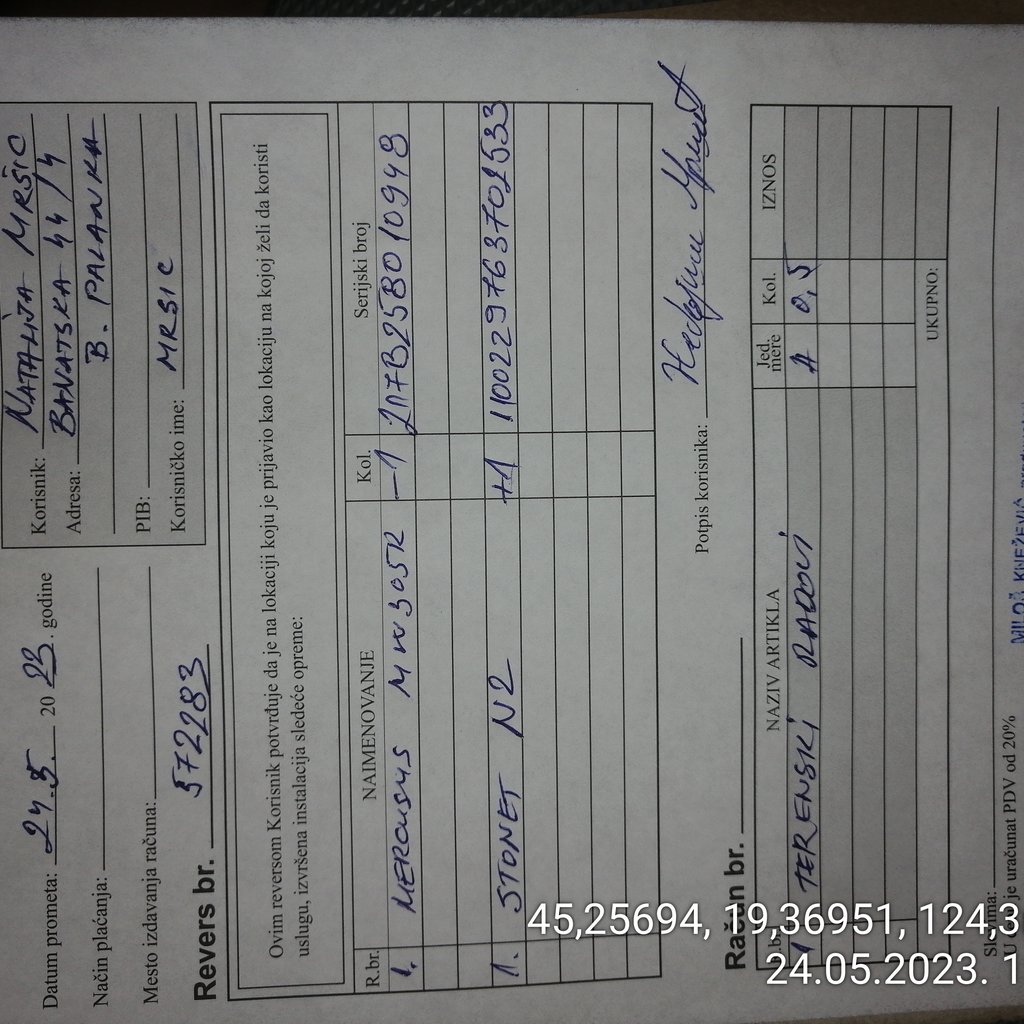 Datum prometa: 24.5. 20 23. godine
Način plaćanja:
Mesto izdavanja računa:
Korisnik: NATALIJA MRŠIC
Adresa: BANATSKA 44/4
B. PALANKA
PIB:
Korisničko ime: MRSIC
Revers br. 572283
Ovim reversom Korisnik potvrđuje da je na lokaciji koju je prijavio kao lokaciju na kojoj želi da koristi
uslugu, izvršena instalacija sledeće opreme:
R.br. NAIMENOVANJE Kol. Serijski broj
1. MERCUSYS MW305R -1 217B258010948
1. STONET N2 +1 1100229763702533
Potpis korisnika:
Račun br.
R.br. NAZIV ARTIKLA Jed. mere Kol. IZNOS
1 TERENSKI RADOVI A 0,5
UKUPNO:
Slovima:
U je uračunat PDV od 20%
MILOŠ KNEŽEVIĆ
45,25694, 19,36951, 124,3
24.05.2023. 1